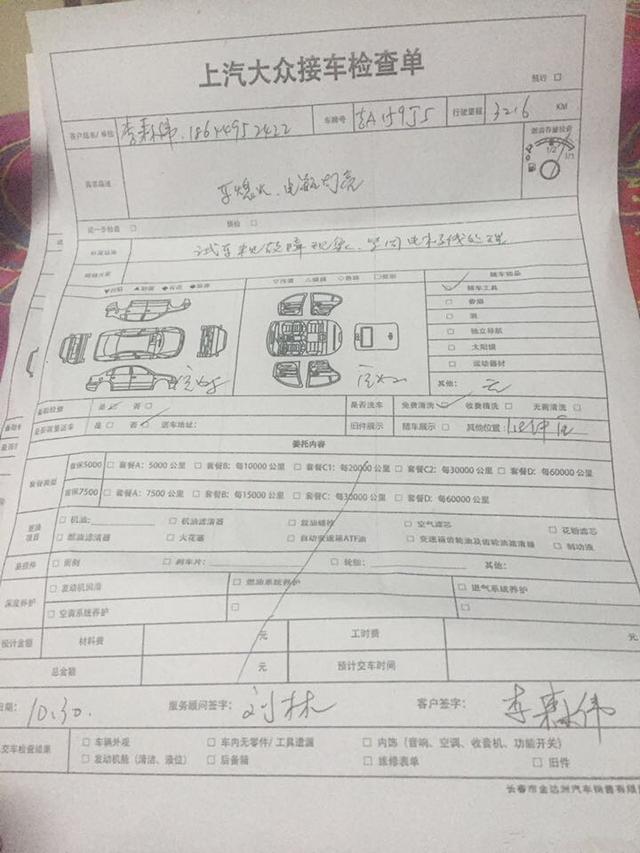 上汽大众接车检查单
预约 □
客户姓名/单位 李 伟 18644952422 车牌号 吉A159J5 行驶里程 3216 KM
燃油存量检查
1/2 1/1
车熄火、电瓶灯亮
进一步检查 □ 预检 □
试车 故障现象
随车物品
随车工具
□ 香烟
□ 独立导航
□ 太阳镜
□ 运动器材
其他: 无
是 □ 否 □ 是否洗车 免费清洗 收费精洗 □ 无需清洗 □
是 □ 否 □ 送车地址: 旧件展示 随车展示 □ 其他位置:
委托内容
套餐类型
套保5000 □ 套餐A: 5000公里 □ 套餐B: 每10000公里 □ 套餐C1: 每20000公里 □ 套餐C2: 每30000公里 □ 套餐D: 每60000公里
套保7500 □ 套餐A: 7500公里 □ 套餐B: 每15000公里 □ 套餐C: 每30000公里 □ 套餐D: 每60000公里
更换项目 □ 机油: □ 机油滤清器 □ 放油螺栓 □ 空气滤芯 □ 花粉滤芯
□ 燃油滤清器 □ 火花塞 □ 自动变速箱ATF油 □ 变速箱齿轮油及齿轮油滤清器 □ 制动液
易损件 □ 雨刷 □ 刹车片: □ 轮胎: 其他:
深度养护 □ 发动机润滑 □ 燃油系统养护 □ 进气系统养护
□ 空调系统养护 □ □
预计金额 材料费 元 工时费 元
总金额 元 预计交车时间
日期: 10.30. 服务顾问签字: 刘林 客户签字: 李 伟
交车检查结果 □ 车辆外观 □ 车内无零件/工具遗漏 □ 内饰(音响、空调、收音机、功能开关)
□ 发动机舱(清洁、液位) □ 后备箱 □ 维修表单 □ 旧件
长春市金达洲汽车销售有限